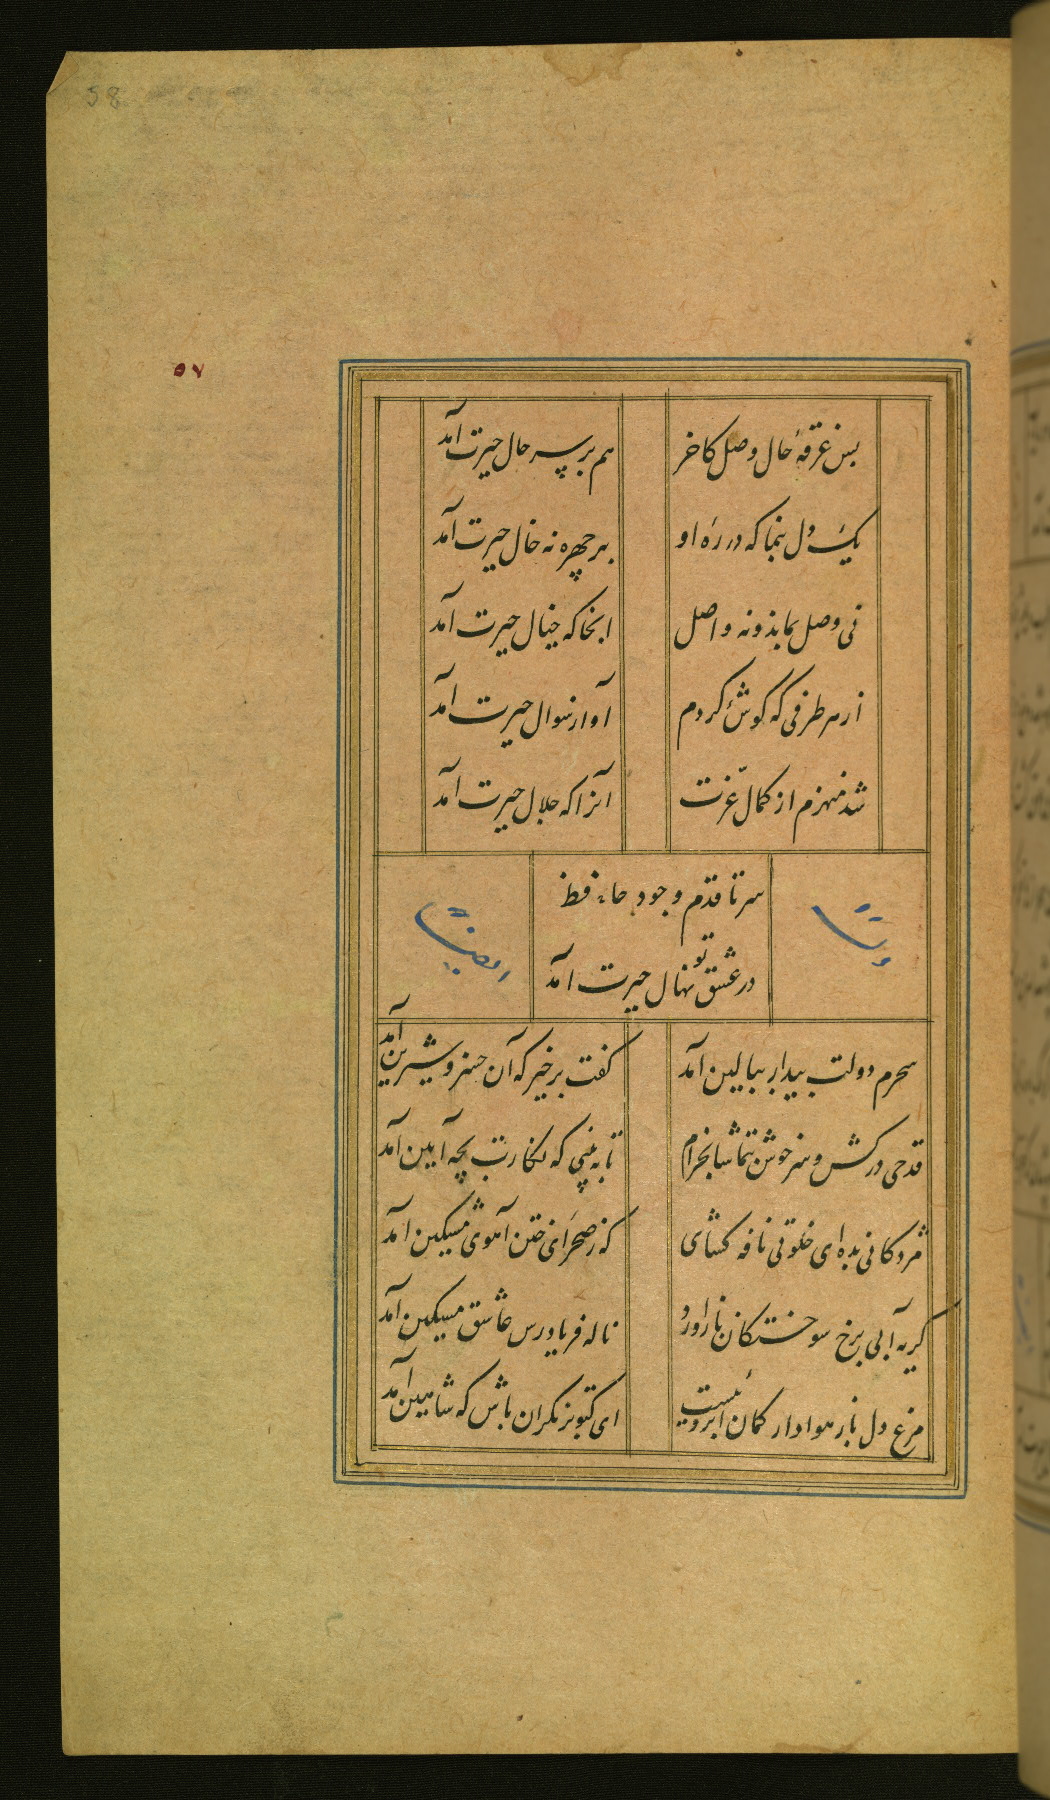 58
۵۷
بس غرقهٔ حال وصل کاخر
هم بر سر حال حیرت آمد
یک دل بنما که در ره او
بر چهره نه خال حیرت آمد
نی وصل بماند و نه واصل
آنجا که خیال حیرت آمد
از هر طرفی که گوش کردم
آواز سوال حیرت آمد
شد منهزم از کمال عزت
آنرا که جلال حیرت آمد
سر تا قدم وجود حافظ
در عشق تو نهال حیرت آمد
سحرم دولت بیدار ببالین آمد
گفت برخیز که آن خسرو شیرین آمد
قدحی درکش و سرخوش بتماشا بخرام
تا به بینی که نگارت بچه آیین آمد
مژدگانی بده ای خلوتی نافه گشای
که ز صحرای ختن آهوی مشکین آمد
گریه آبی برخ سوختگان باز آورد
ناله فریادرس عاشق مسکین آمد
مرغ دل باز هوادار کمان ابروئیست
ای کبوتر نگران باش که شاهین آمد